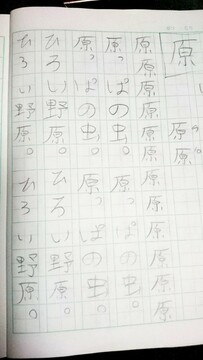 原
原原
原原原原原原原原原原
原っぱの虫。原っぱの虫。
原っぱの虫。原っぱの虫。
ひろい野原。ひろい野原。
ひろい野原。ひろい野原。